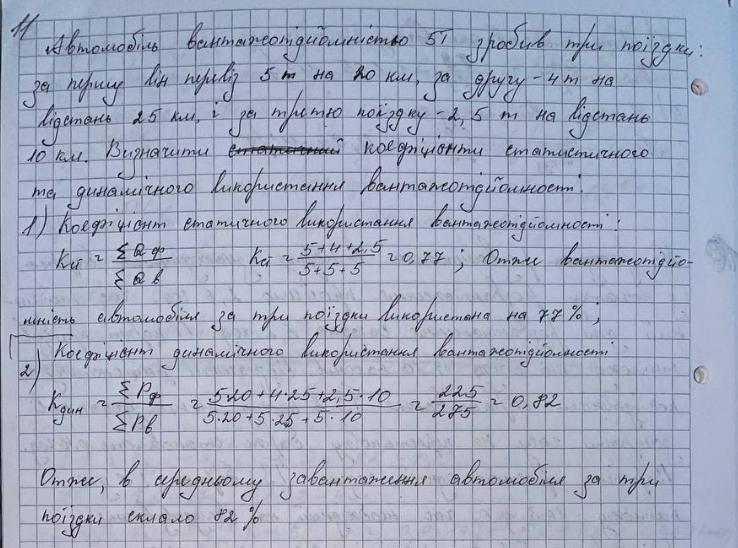 11
Автомобіль вантажопідйомністю 5т зробив три поїздки:
за першу він перевіз 5 т на 20 км, за другу - 4 т на
відстань 25 км, і за третю поїздку - 2,5 т на відстань
10 км. Визначити статичний коефіцієнти статистичного
та динамічного використання вантажопідйомності.
1) Коефіцієнт статичного використання вантажопідйомності:
Кст = ΣQф / ΣQв Кст = 5+4+2,5 / 5+5+5 = 0,77; Отже вантажопідйо-
мність автомобіля за три поїздки використана на 77%;
2) Коефіцієнт динамічного використання вантажопідйомності
Кдин = ΣРф / ΣРв = 5·20+4·25+2,5·10 / 5·20+5·25+5·10 = 225 / 275 = 0,82
Отже, в середньому завантаження автомобіля за три
поїздки склало 82%